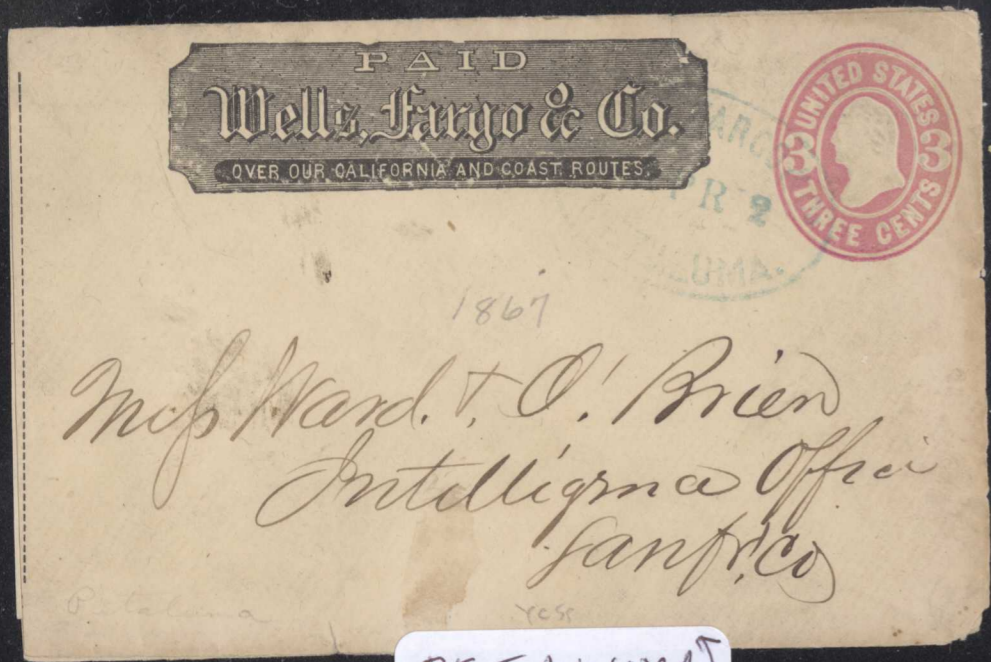 PAID
Wells, Fargo & Co.
OVER OUR CALIFORNIA AND COAST ROUTES.
UNITED STATES
3 3
THREE CENTS
ARGO
PR 2
LUMA.
1867
Mess Ward. & O'Brien
Intelligence Office
San Fr. Co
Petaluma